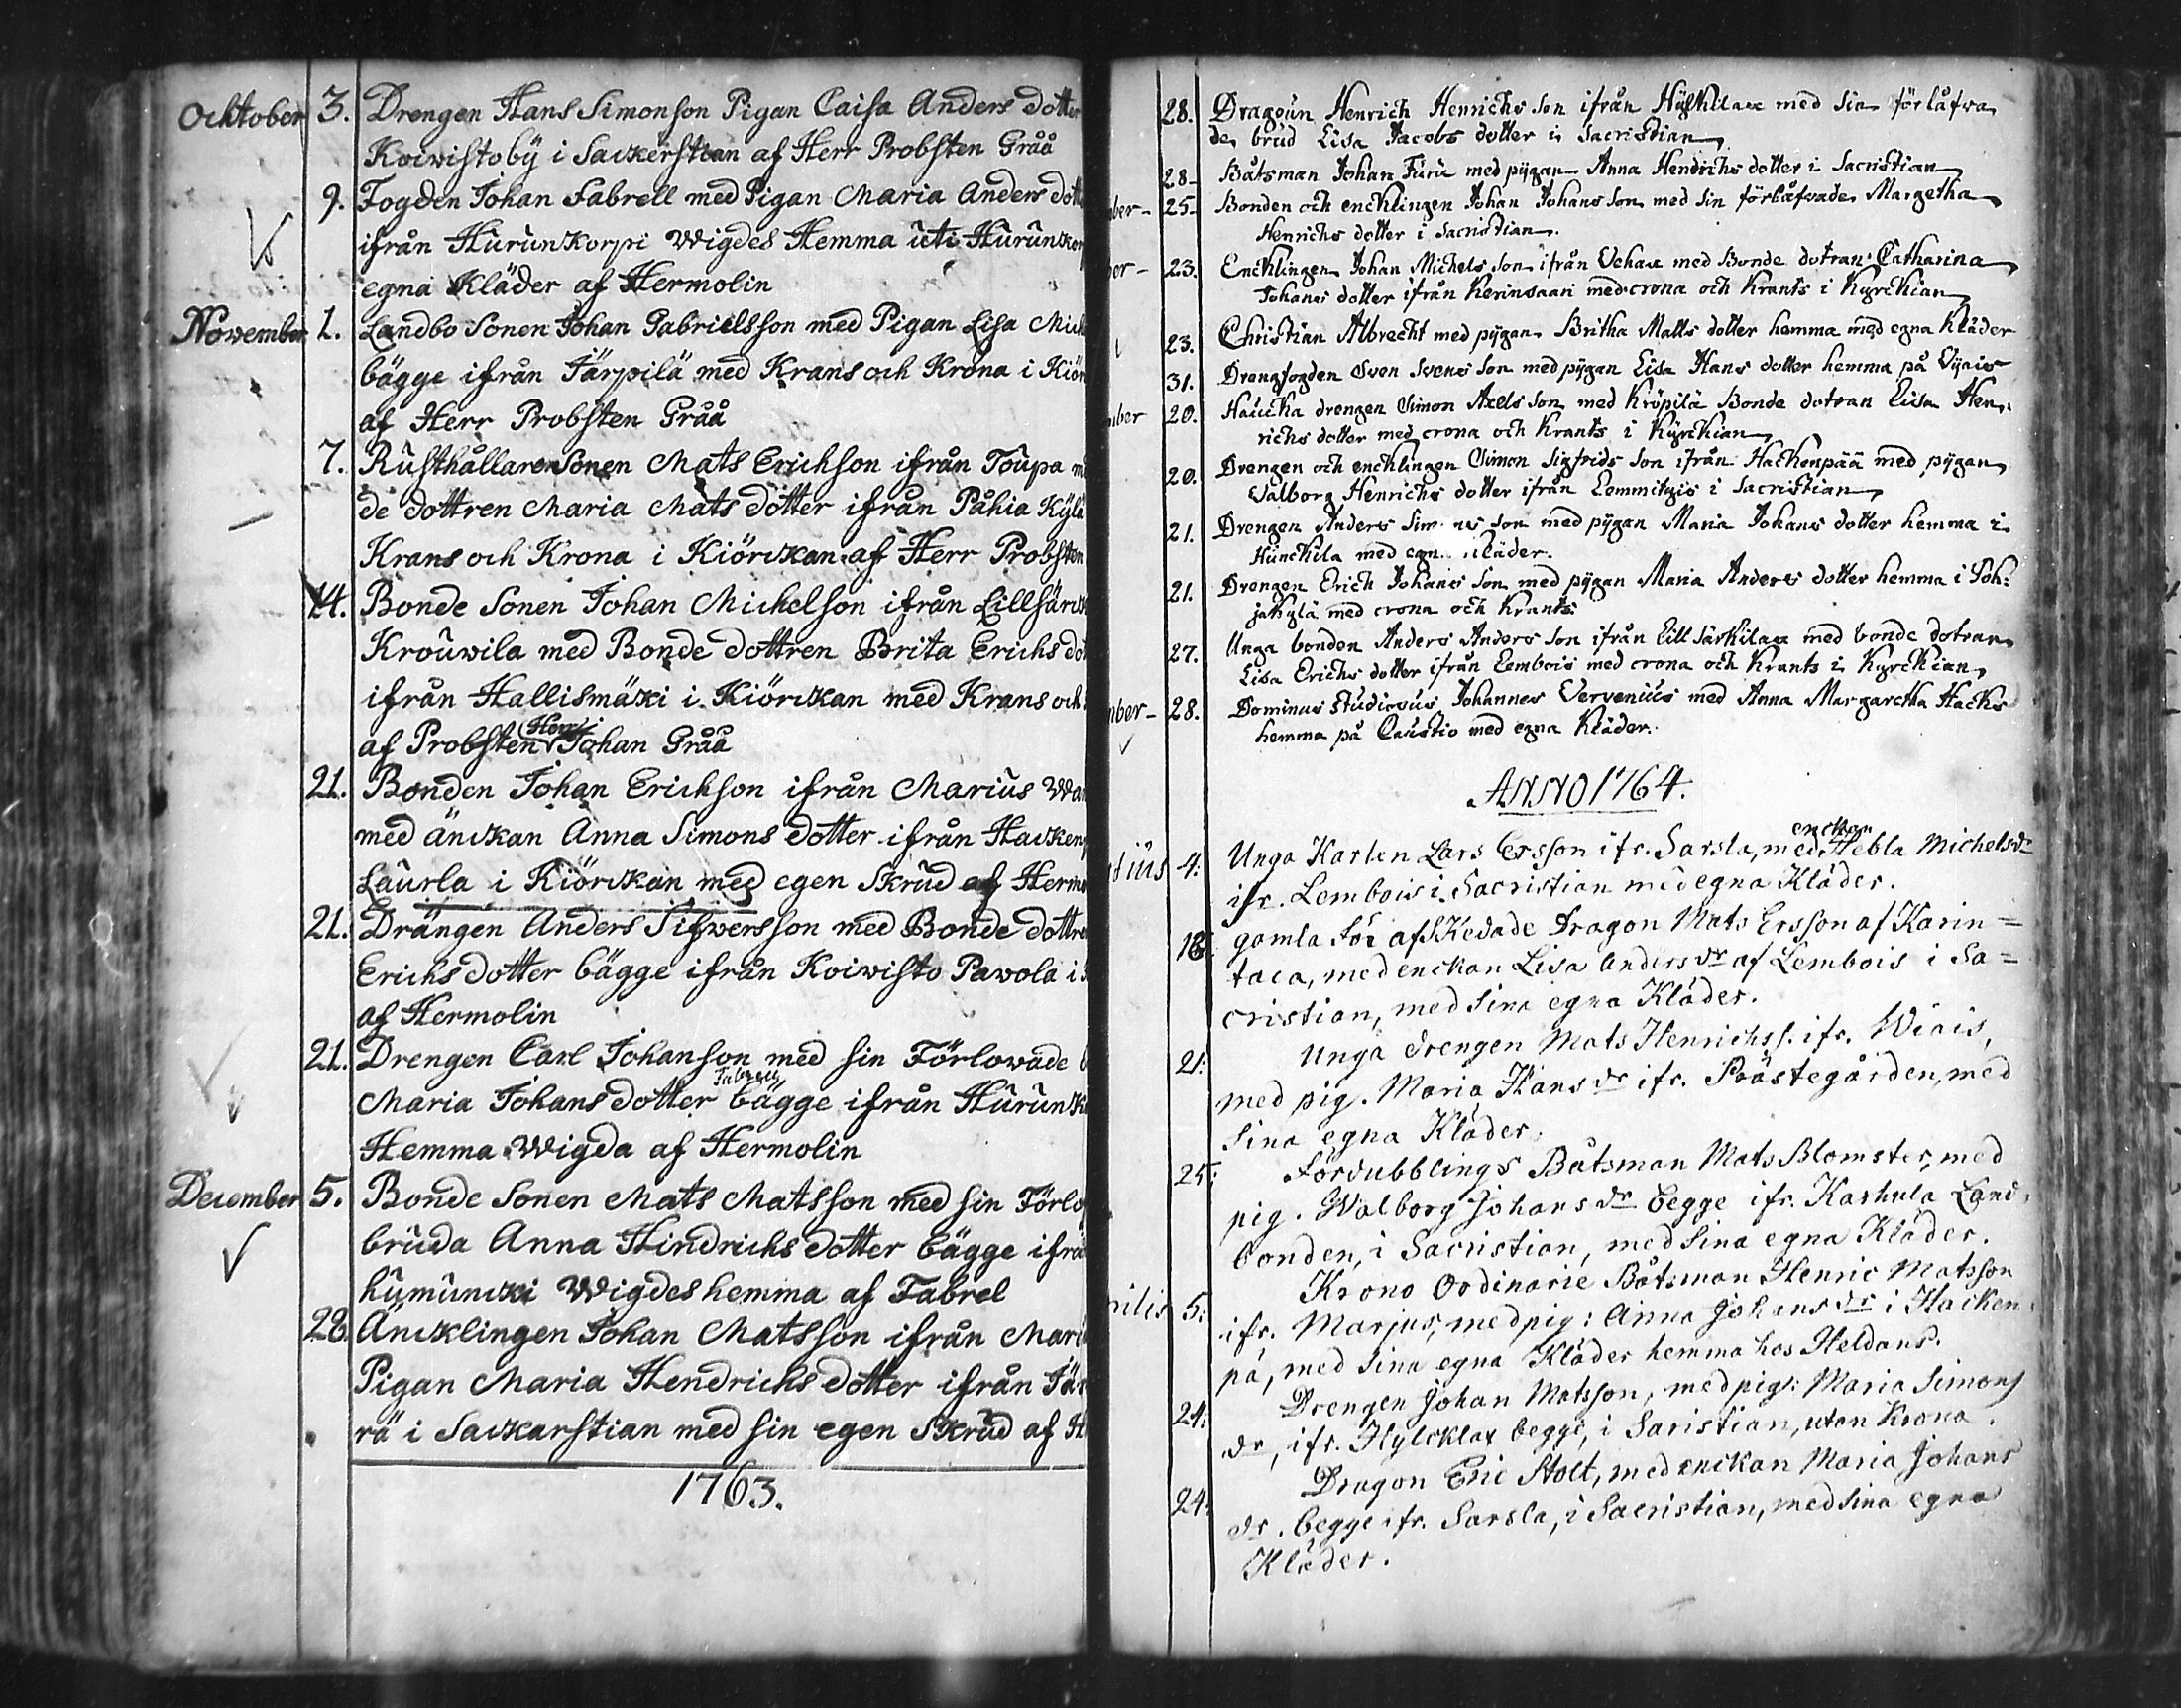 Ochtober 3. Drengen Hans Simonson Pigan Caisa Anders dotter
Koiwistobÿ i Sackerstian af Herr Probsten Gråå
9. Fogden Johan Fabrell med Pigan Maria Anders dott
ifrån Hurunkorpi Wigdes Hemma uti Hurunkor
egna Kläder af Hermolin
November 1. Landbo Sonen Johan Gabrielsson med Pigan Lisa Mich
bägge ifrån Järpilä med Krans och Krona i Kiör
af Herr Probsten Gråå
7. Rusthållare Sonen Mats Erichson ifrån Toupa
de dottren Maria Mats dotter ifrån Påhia Kÿlä
Krans och Krona i Kiörckan af Herr Probsten
14. Bonde Sonen Johan Michelson ifrån Lillsärck
Krouwila med Bonde dottren Brita Erichs do
ifrån Hallismäki i Kiörckan med Krans och
af Probsten Herr Johan Gråå
21. Bonden Johan Erichson ifrån Marius Wa
med änckan Anna Simons dotter ifrån Hacken
Laurla i Kiörckan med egen Skrud af Herm
21. Drängen Anders Sifwersson med Bonde dottre
Erichs dotter bägge ifrån Koiwisto Pawola i
af Hermolin
21. Drengen Carl Johanson med sin Förlowade
Maria Johans dotter bägge ifrån Hurunk
Hemma Wigda af Hermolin
December 5. Bonde Sonen Mats Matsson med sin Förlo
bruda Anna Hindrichs dotter bägge ifrå
humuncki Wigdes hemma af Fabrel
28. Äncklingen Johan Matsson ifrån Mari
Pigan Maria Hendrichs dotter ifrån Jär
rä i Sackarstian med sin egen Skrud af H
1763.
28. Dragoun Henrich Henrichs Son ifrån Hylkilax med Sin förlåfva
de brud Lisa Jacobs dotter i Sacristian
28. Båtsman Johan Furu med pÿgan Anna Hendrichs dotter i Sacristian
ber 25. Bonden och encklingen Johan Johans Son med Sin förlåfvade Margetha
Henrichs dotter i Sacristian.
er 23. Encklingen Johan Michels Son ifrån Vehax med Bonde dotran Catharina
Johans dotter ifrån Kerinsaari med crona och Krants i Kyrckian
23. Christian Albrecht med pÿgan Britha Matts dotter hemma med egna Kläder
31. Drengfogden Sven Svens Son med pÿgan Lisa Hans dotter hemma på Vÿais
mber 20. Haucka drengen Simon Axels Son med Kröpilä Bonde dotran Lisa Hen,
richs dotter med crona och Krants i Kÿrckian
20. Drengen och encklingen Simon Sigfrids Son ifrån Hackenpää med pÿgan
Valborg Henrichs dotter ifrån Lemmityis i Sacristian
21. Drengen Anders Sim ns Son med pÿgan Maria Johans dotter hemma i
Hunckila med egn Kläder.
21. Drengen Erich Johans Son med pÿgan Maria Anders dotter hemma i Poh:
jakylä med crona och Krants
27. Unga bonden Anders Anders Son ifrån Lill Särkilax med bonde dotran
Lisa Erichs dotter ifrån Lembois med crona och Krants i Kyrckian
mber 28. Dominus Studiosus Johannes Vervenius med Anna Margaretha Hacks
hemma på Caustio med egna Kläder.
ANNO 1764.
tius 4: Unga Karlen Lars Ersson ifr. Sarsla, med enckan Hebla Michels dr
ifr. Lembois i Sacristian med egna Kläder.
18: gamla för afskedade Dragon Mats Ersson af Karin=
taca, med enckan Lisa Anders dr af Lembois i Sa=
cristian, med sina egna Kläder.
21: Unga drengen Mats Henrichss. ifr. Wiais,
med pig. Maria Hans dr ifr. Prästegården, med
sina egna Kläder.
25: Fördubblings Båtsman Mats Blomster, med
pig. Walborg Johans dr begge ifr. Karhula Land,
bonden, i Sacristian, med sina egna Kläder.
rilis 5: Krono Ordinarie Båtsman Henric Matsson
ifr. Marjus, med pig: Anna Johans dr i Hacken,
pä, med sina egna Kläder hemma hos Heldans.
24: Drengen Johan Matsson, med pig: Maria Simons
dr, ifr. Hylcklax begge, i Saristian, utan Krona.
24: Dragon Eric Stolt, med enckan Maria Johans
dr. begge ifr. Sarsla, i Sacristian, med sina egna
Kläder.